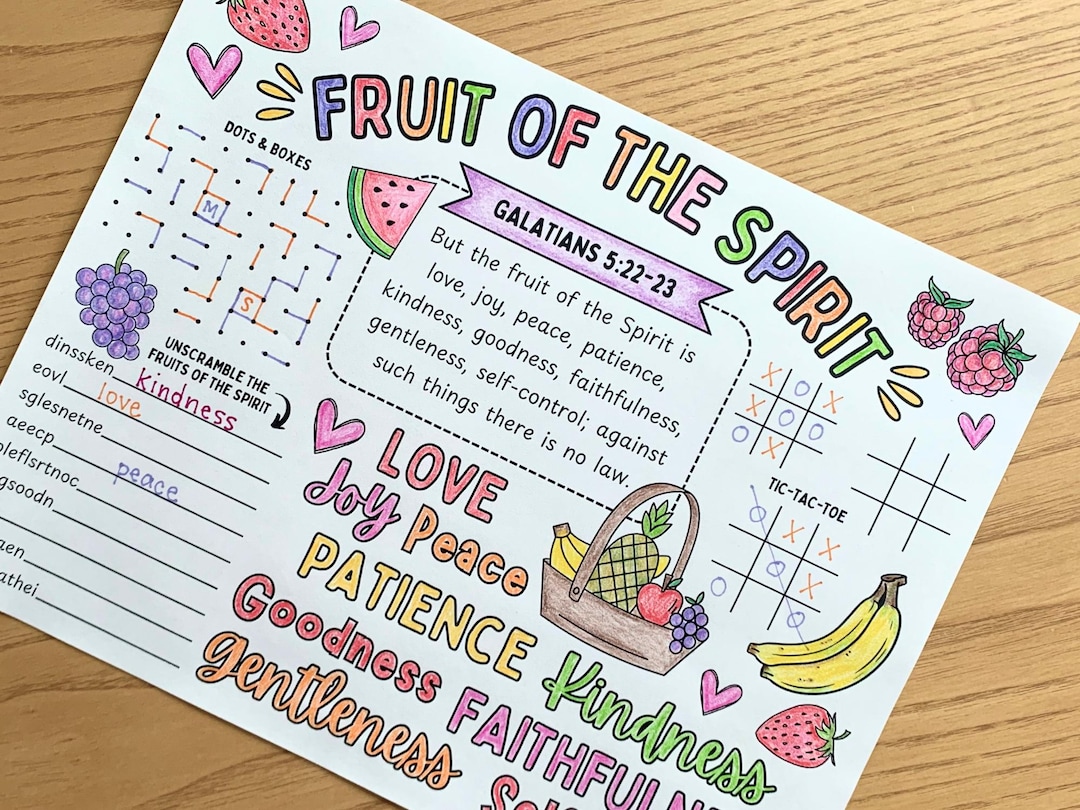 FRUIT OF THE SPIRIT
DOTS & BOXES
M
S
GALATIANS 5:22-23
But the fruit of the Spirit is
love, joy, peace, patience,
kindness, goodness, faithfulness,
gentleness, self-control; against
such things there is no law.
UNSCRAMBLE THE
FRUITS OF THE SPIRIT
dinssken kindness
eovl love
sglesnetne
aeecp peace
oleflsrtnoc
gsoodn
aen
athei
X O X
X O O
O X
TIC-TAC-TOE
O X X
O X
O O
LOVE
Joy Peace
PATIENCE
Goodness Kindness
gentleness FAITHFULN
Sel